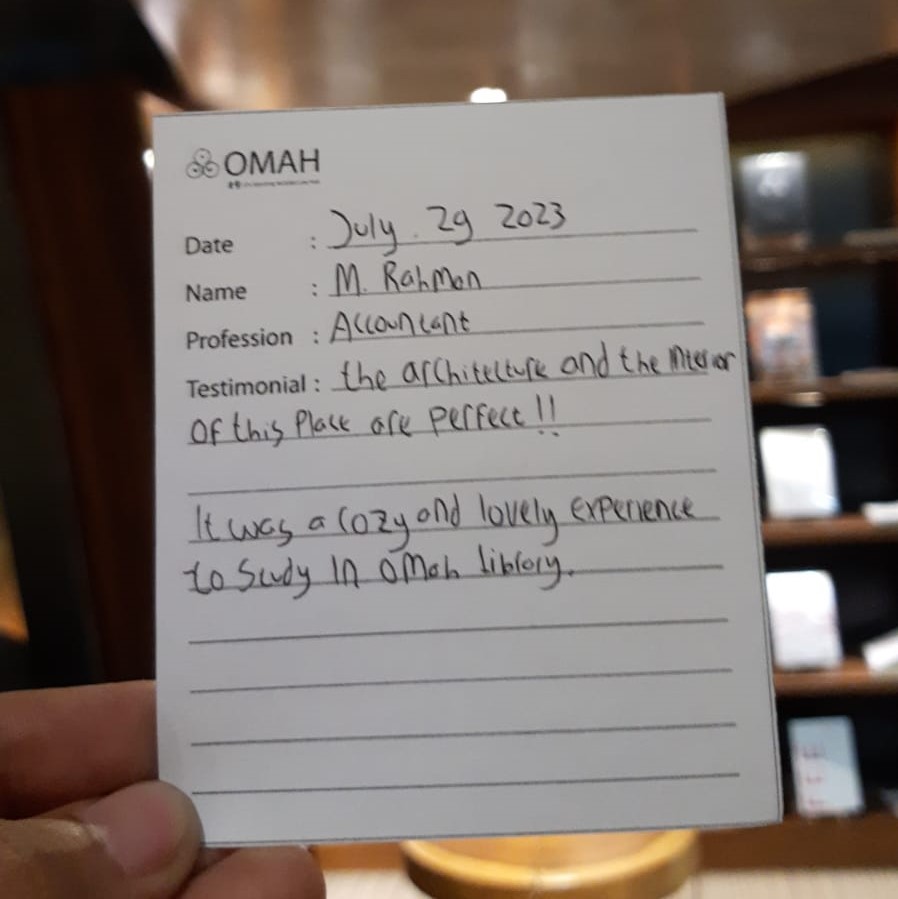 OMAH
Date : July 29 2023
Name : M. Rahman
Profession : Accountant
Testimonial : the architecture and the interior
Of this Place are perfect!!
It was a cozy and lovely experience
to Study In Omah library.